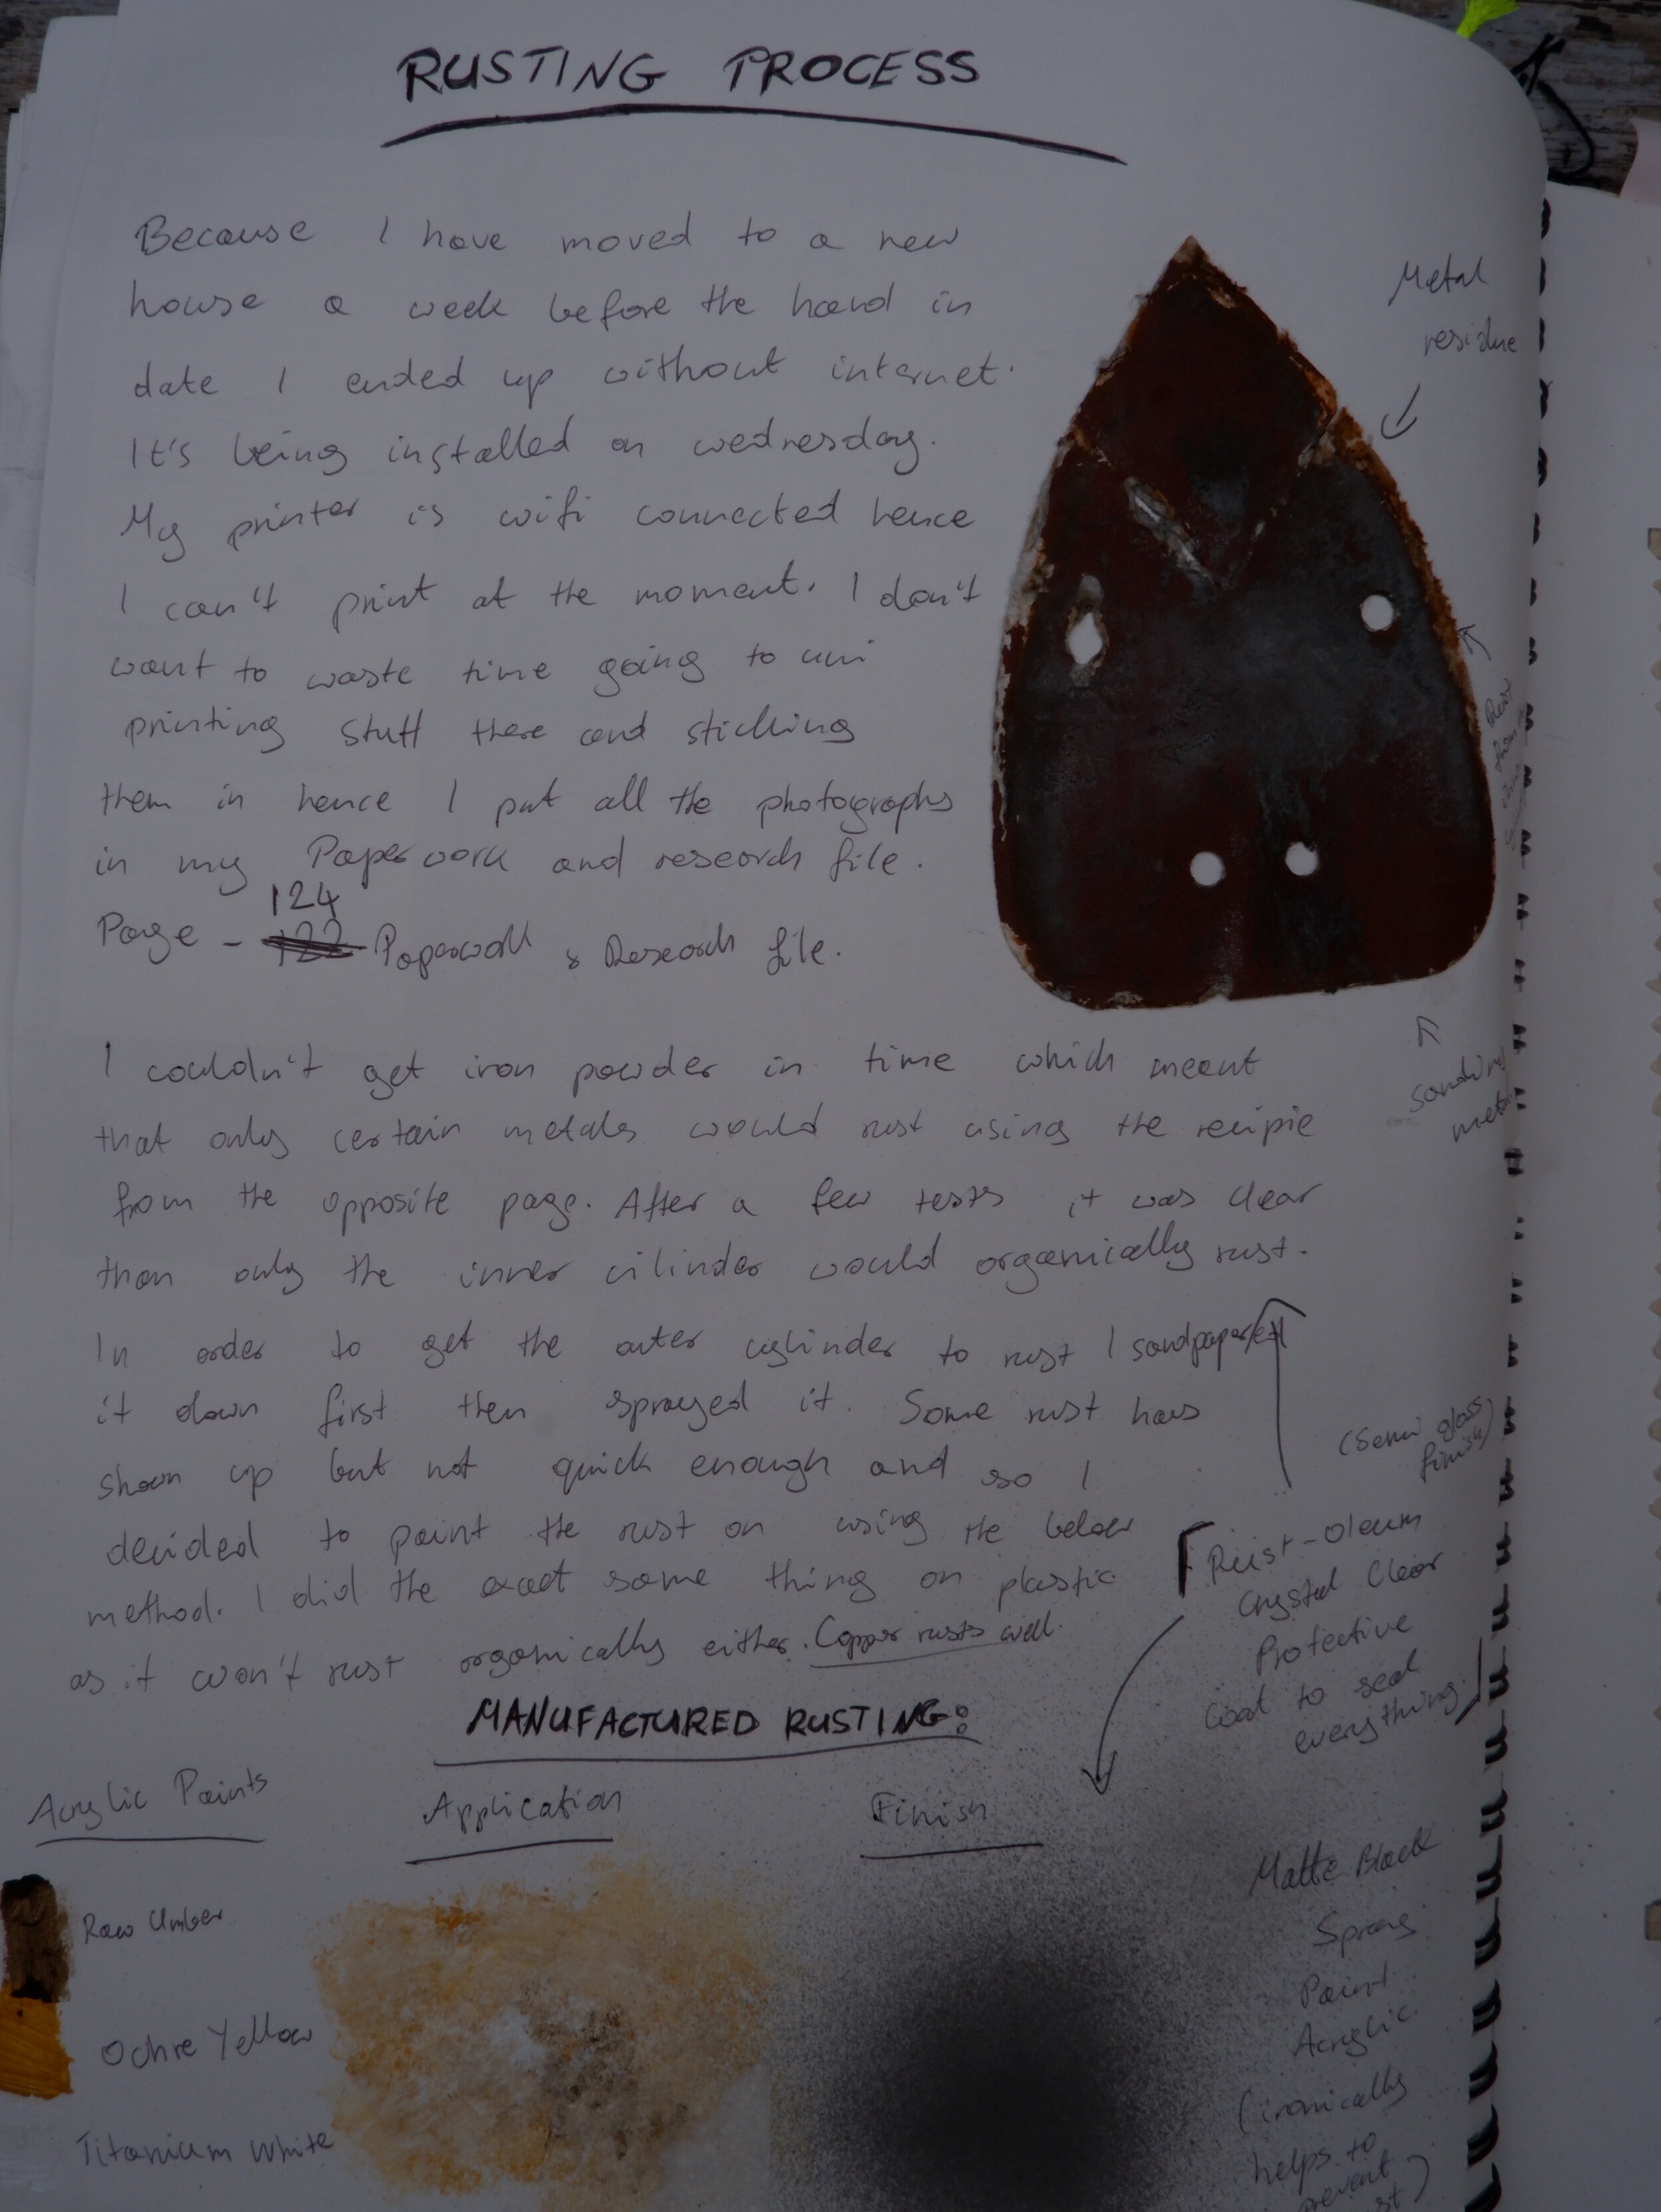 RUSTING PROCESS
Because I have moved to a new
house a week before the hand in
date I ended up without internet.
It's being installed on wednesday.
My printer is wifi connected hence
I can't print at the moment. I don't
want to waste time going to uni
printing stuff there and sticking
them in hence I put all the photographs
in my Paperwork and research file.
124
Page - 122 Paperwork & Research file.
Metal
residue
Sanding
metal
I couldn't get iron powder in time which meant
that only certain metals would rust using the recipie
from the opposite page. After a few tests it was clear
than only the inner cilinder would organically rust.
In order to get the outer cylinder to rust I sandpapered
it down first then sprayed it. Some rust has
shown up but not quick enough and so I
decided to paint the rust on using the below
method. I did the exact same thing on plastic
as it won't rust organically either. Copper rusts well.
(Semi gloss
finish)
Rust-Oleum
Crystal Clear
Protective
Coat to seal
everything
MANUFACTURED RUSTING:
Acrylic Paints
Application
Finish
Raw Umber
Ochre Yellow
Titanium White
Matte Black
Spray
Paint
Acrylic
(ironically
helps to
prevent